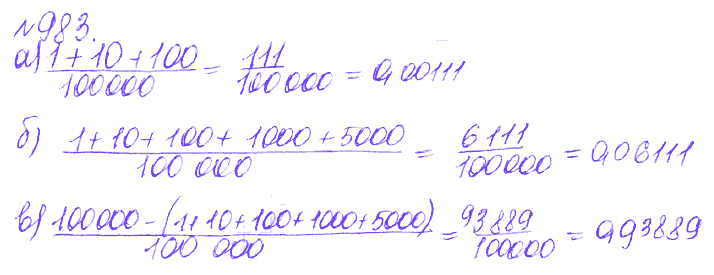 №983.
а) (1+10+100)/100000 = 111/100000 = 0,00111
б) (1+10+100+1000+5000)/100 000 = 6111/100000 = 0,06111
в) (100000-(1+10+100+1000+5000))/100 000 = 93889/100000 = 0,93889